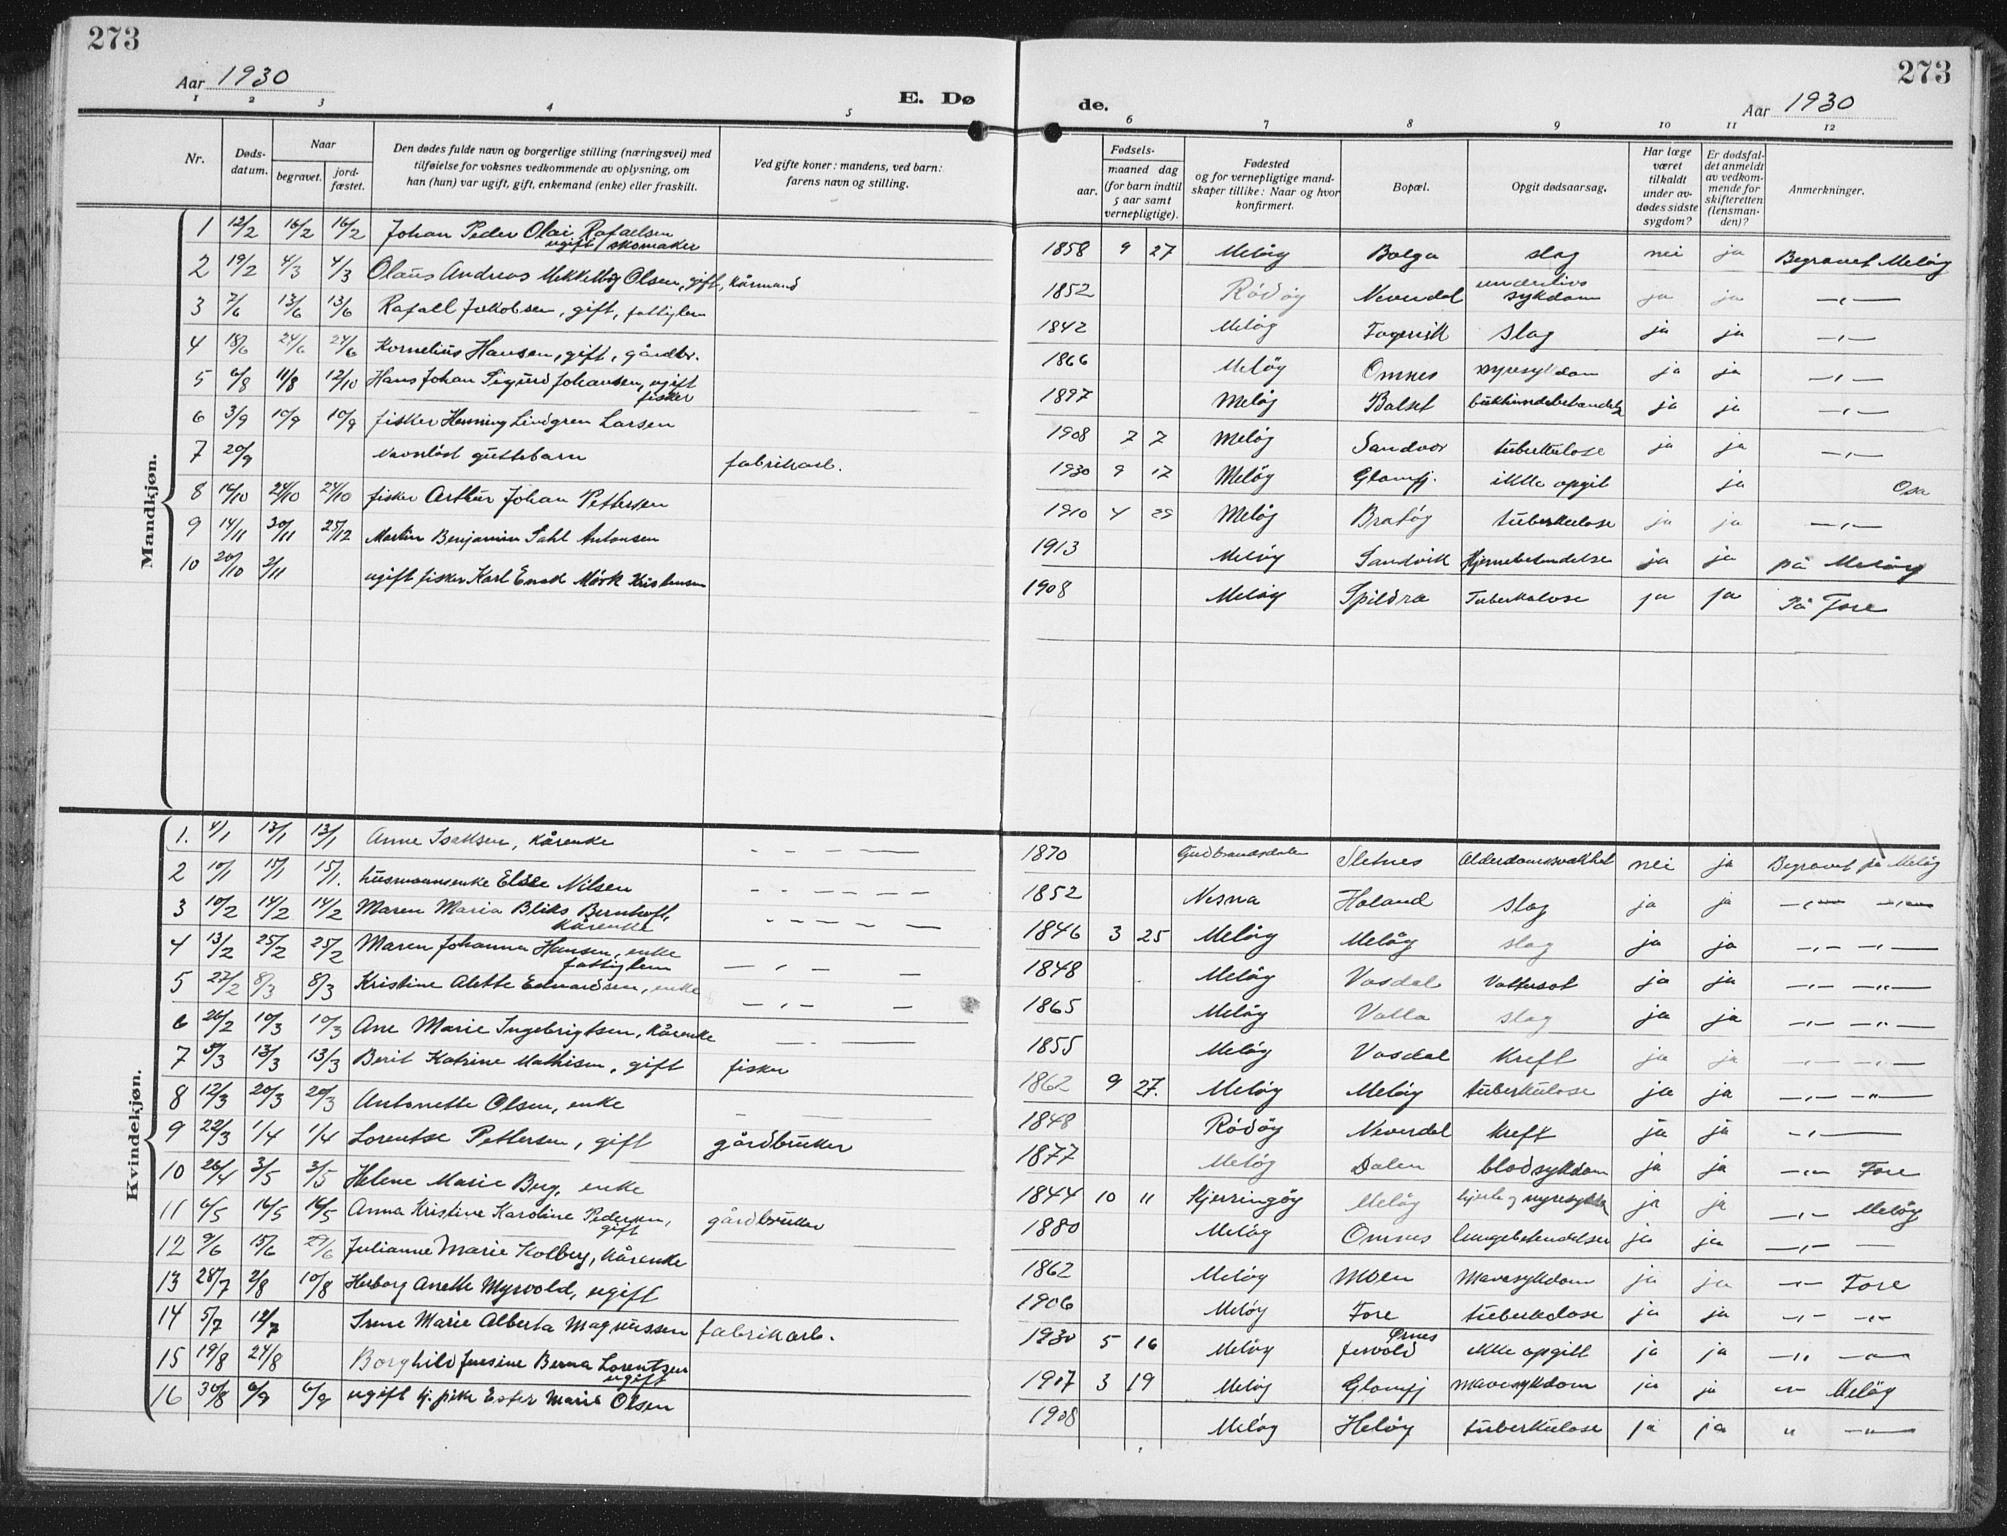 273
Aar 1930
E. Dø
1 2 3 4 5
Nr.
Døds-datum.
Naar
begravet.
jord-fæstet.
Den dødes fulde navn og borgerlige stilling (næringsvei) med
tilføielse for voksnes vedkommende av oplysning, om
han (hun) var ugift, gift, enkemand (enke) eller fraskilt.
Ved gifte koner: mandens, ved barn:
farens navn og stilling.
Mandkjøn.
1 12/2 16/2 16/2 Johan Peder Olai Rafaelsen
ugift / skomaker
2 19/2 4/3 4/3 Olaus Andreas Mikkelborg Olsen, gift, kårmand
3 7/6 13/6 13/6 Rafaell Jakobsen, gift, fattiglem
4 18/6 24/6 24/6 Kornelius Hansen, gift, gårdbr.
5 6/8 11/8 12/10 Hans Johan Sigurd Johansen, ugift
fisker
6 3/9 10/9 10/9 fisker Henning Lindgren Larsen
7 20/9 Navnløst guttebarn fabrikarb.
8 16/10 24/10 24/10 fisker Arthur Johan Pettersen
9 14/11 30/11 25/12 Martin Benjamin Dahl Antonsen
10 20/10 2/11 ugift fisker Karl Enok Mörk Kristensen
Kvindekjøn.
1. 4/1 13/1 13/1 Anne Isaksen, kårenke - - - -
2 10/1 15/1 15/1. husmannsenke Elise Nilsen - - - - -
3 10/2 14/2 14/2 Maren Maria Bliks Bernhoft,
kårenke - - - -
4 13/2 25/2 25/2 Maren Johanna Hansen, enke
fattiglem - , - -
5 27/2 8/3 8/3 Kristine Alette Edvardsen, enke - , - -
6 26/2 10/3 10/3 Ane Marie Ingebrigtsen, kårenke - . -
7 5/3 13/3 13/3 Berit Katrine Mathisen, gift fisker
8 12/3 20/3 20/3 Antonette Olsen, enke - - -
9 22/3 1/4 1/4 Lorentse Pettersen, gift gårdbruker
10 26/4 3/5 3/5 Helene Marie Berg, enke
11 6/5 16/5 16/5 Anna Kristine Karoline Pedersen,
gift gårdbruker
12 9/6 15/6 29/6 Julianne Marie Kolberg, kårenke
13 28/7 2/8 10/8 Herborg Anette Myrvold, ugift
14 5/7 12/7 Irene Marie Alberta Magnussen fabrikarb.
15 19/8 24/8 Borghild Jensine Berna Lorentsen
ugift
16 30/8 6/9 6/9 ugift tj. pike Ester Marie Olsen
273
de.
Aar 1930
6 7 8 9 10 11 12
Fødsels-
aar.
maaned dag
(for barn indtil
5 aar samt
vernepligtige).
Fødested
og for vernepligtige mand-
skaper tillike: Naar og hvor
konfirmert.
Bopæl.
Opgit dødsaarsag.
Har læge
været
tilkaldt
under av-
dødes sidste
sygdom?
Er dødsfal-
det anmeldt
av vedkom-
mende for
skifteretten
(lensman-
den)?
Anmerkninger.
1858 9 27 Meløy Bolga slag nei ja Begravet Meløy
1852 Rödöy Neverdal underlivs
sykdom ja ja -"-
1842 Meløy Fagervik slag ja ja -"-
1866 Meløy Ørnes nyresykdom ja ja -"-
1897 Meløy Balset bukhindebetændelse ja ja -"-
1908 7 7 Meløy Sandvær tuberkulose ja ja -"-
1930 9 17 Meløy Glomfj. ikke opgit ja Osa
1910 4 29 Meløy Bratøy tuberkulose ja ja -"-
1913 Meløy Sandvik Hjernebetendelse ja ja på Meløy
1908 Meløy Spildra Tuberkulose ja ja På Fore
1870 Gudbrandsdalen Sletnes Alderdomssvakhet nei ja Begravet på Meløy
1852 Nesna Haland slag ja ja -"- -"-
1846 3 25 Meløy Meløy slag ja ja -"- -"-
1848 Meløy Vasdal Vattersot ja ja -"- -"-
1865 Meløy Valla slag ja ja -"- -"-
1855 Meløy Vasdal Kreft ja ja -"- -"-
1862 9 27. Meløy Meløy tuberkulose ja ja -"- -"-
1848 Rödöy Neverdal kreft ja ja -"-
1877 Meløy Dalen blodsykdom ja ja -"- Fore
1844 10 11 Kjerringöy Meløy hjerte og nyresykd. ja ja -"- Meløy
1880 Meløy Ørnes lungebetendelse ja ja -"- -
1862 Meløy Moen Mavesykdom ja ja -"- Fore
1906 Meløy Fore tuberkulose ja ja -"- -"-
1930 5 16 Meløy Ørnes ikke opgitt ja ja -"- -"-
1917 3 19 Meløy Glomfj mavesykdom ja ja -"- Meløy
1908 Meløy Heløy tuberkulose ja ja " -"-